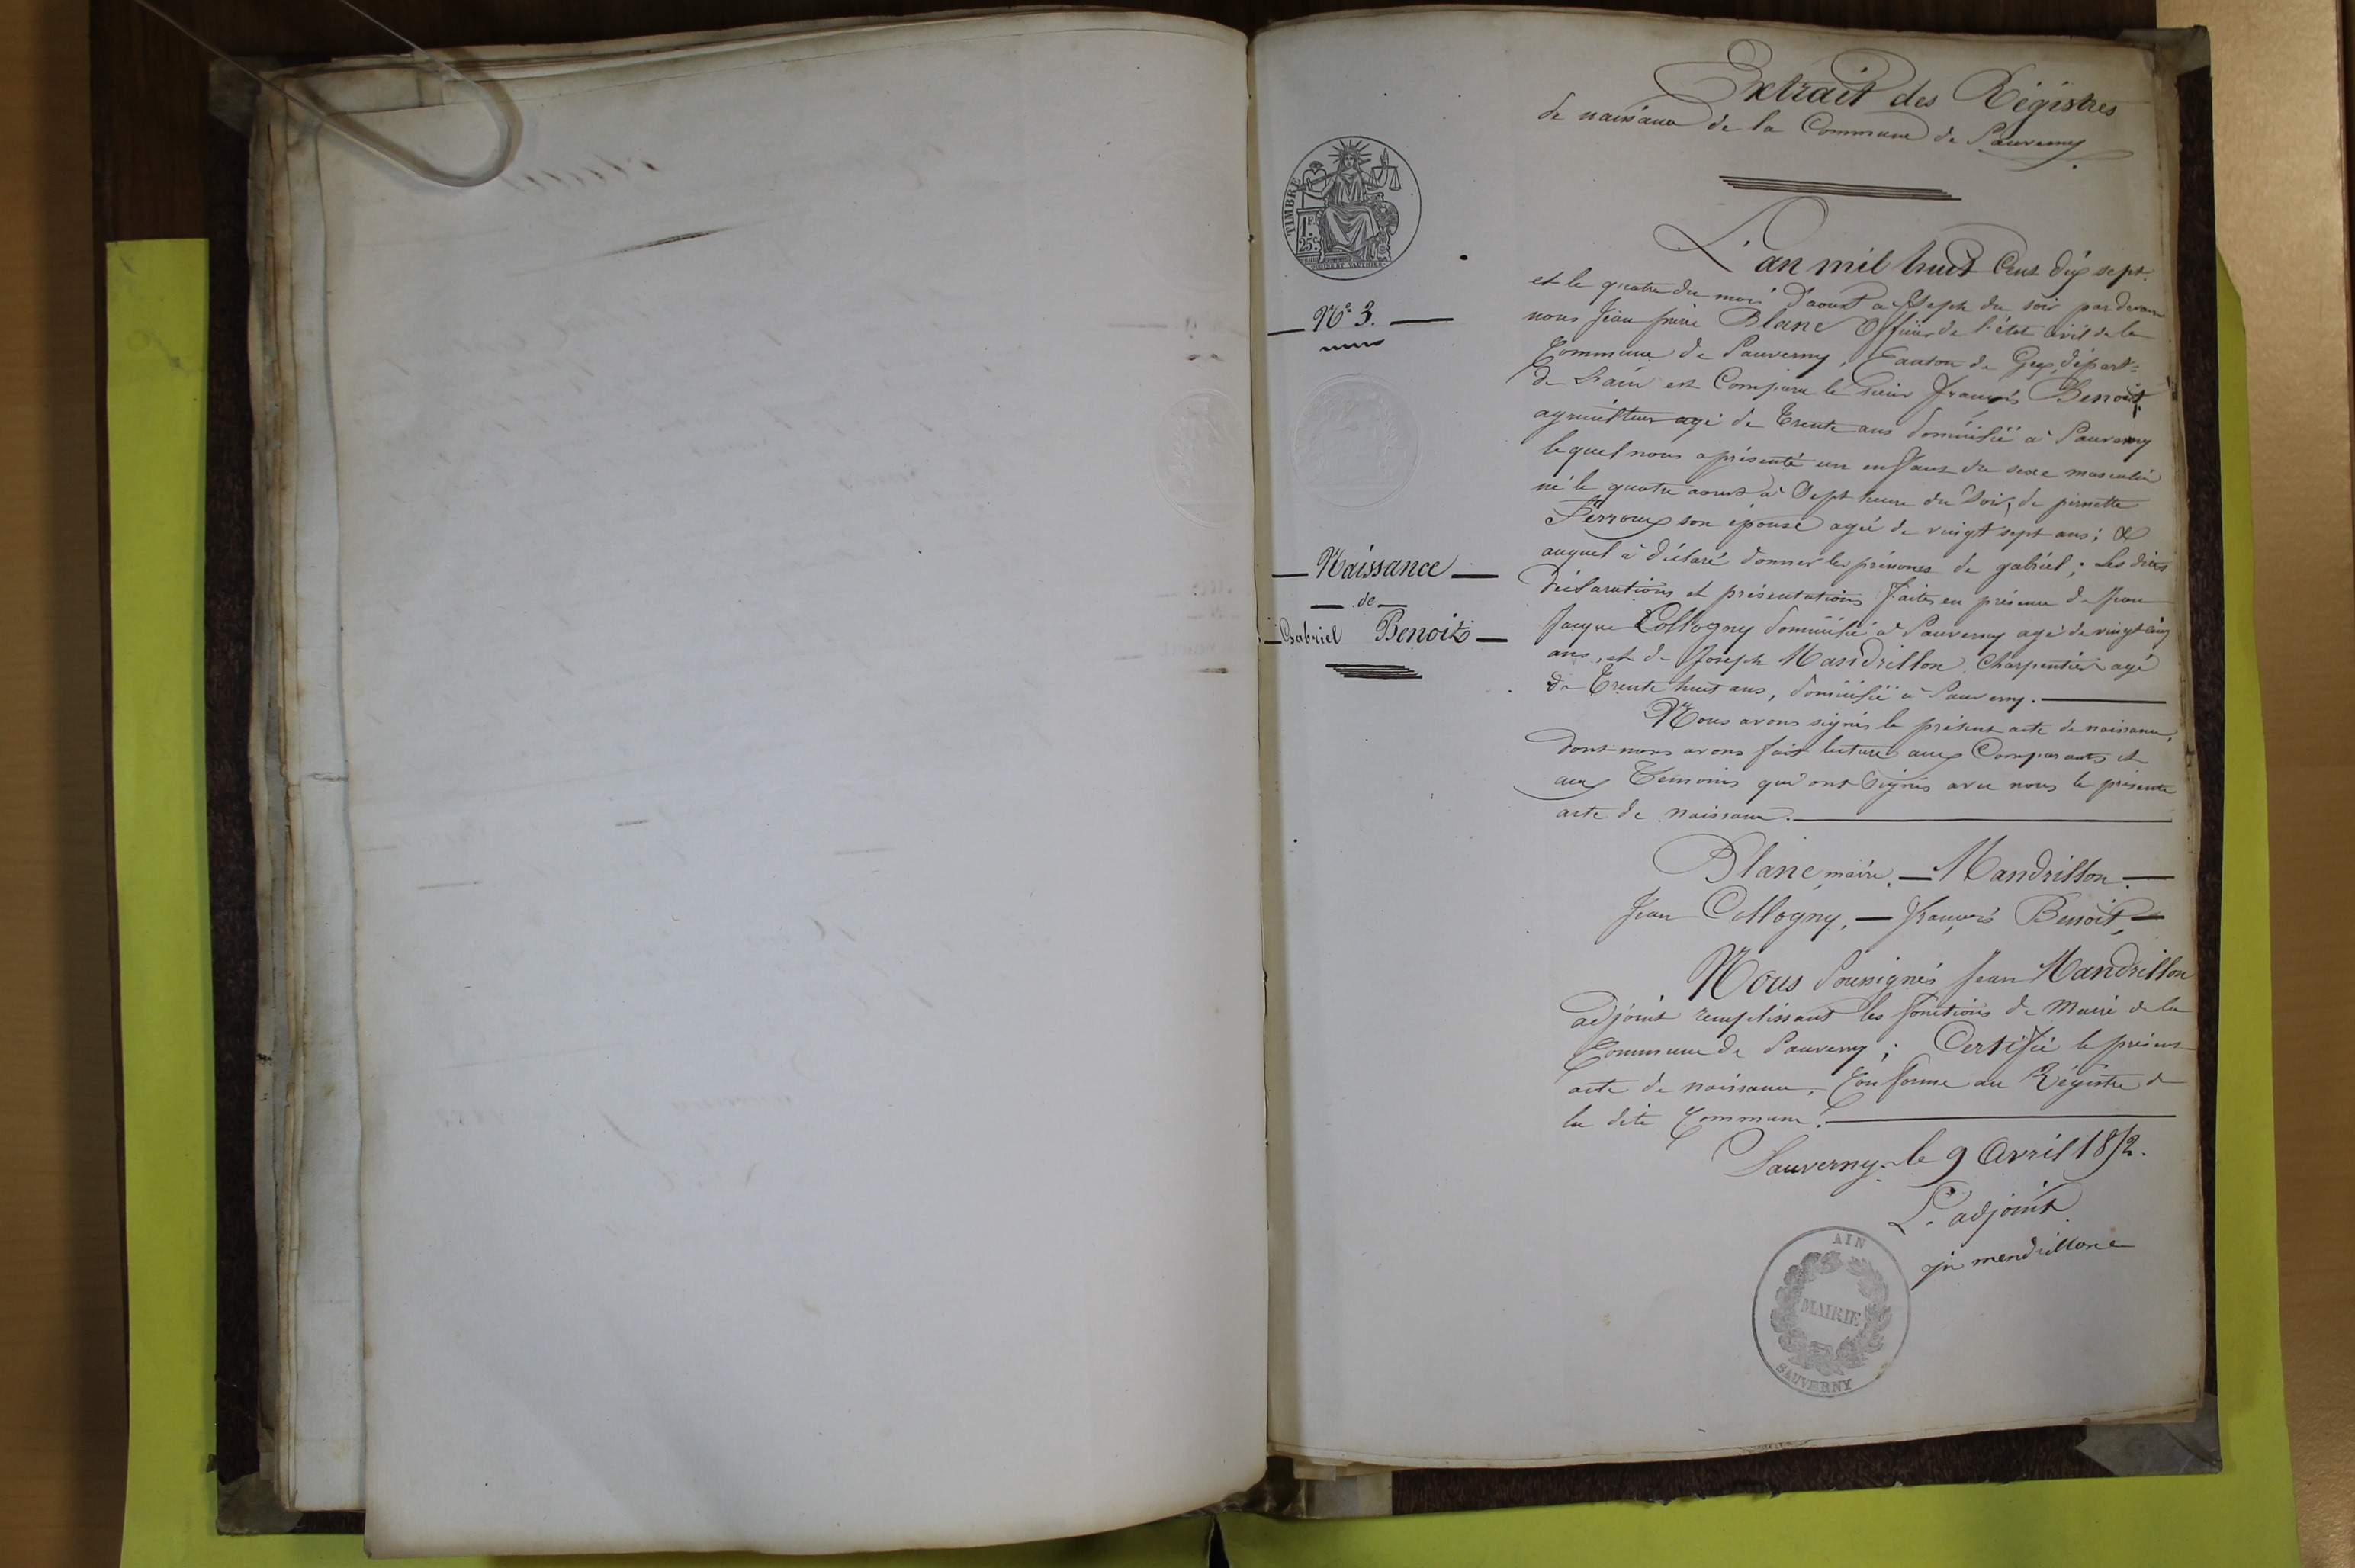 Extrait des Régistres
de naissance de la Commune de Sauverny
TIMBRE
1 F.
25 c.
N° 3.
Naissance
de
Gabriel Benoit
L'an mil huit Cent dix sept
et le quatre du mois d'aoust à Sept du soir par devant
nous Jean pierre Blanc Officier de l'état civil de la
Commune de Sauverny, Canton de Gex, départ=
de L'ain est Comparu le sieur François Benoit,
agriculteur agé de Trente ans domicilié à Sauverny
lequel nous a présenté un enfant du sexe masculin
né le quatre aoust à Sept heure du Soir, de pernette
Perroux son épouse agée de vingt sept ans; &
auquel à déclaré donner les prénoms de gabriel; les dites
déclarations et présentations faites en présence de Jean
Jacque Collogny domicilié à Sauverny agé de vingt cinq
ans, et de Joseph Mandrillon, Charpentier agé
de Trente huit ans, domicilié à Sauverny.
Nous avons signés le présent acte de naissance,
dont nous avons fait lecture aux Comparants et
aux Témoins qui ont Signés avec nous le présente
acte de naissance.
Blanc, maire. — Mandrillon.
Jean Collogny, — François Benoit,
Nous Soussignés Jean Mandrillon
adjoint remplissant les fonctions de Maire de la
Commune de Sauverny; Certifié le présent
acte de naissance, Conforme au Régistre de
la dite Commune.
Sauverny, le 9 Avril 1852.
L'adjoint
jn mendrillone
AIN
MAIRIE
SAUVERNY